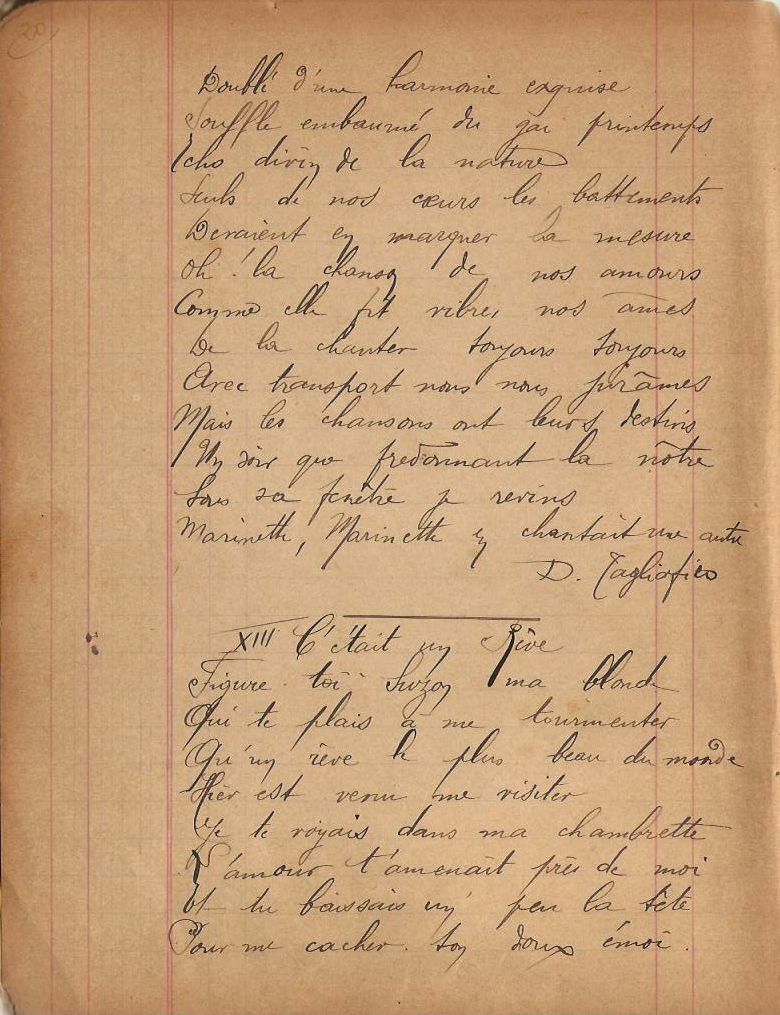 20
Doublé d'une harmonie exquise
Souffle embaumé du gai printemps
Echo divin de la nature
Seuls de nos cœurs les battements
Devraient en marquer la mesure
Oh ! la chanson de nos amours
Comme elle fit vibrer nos âmes
De la chanter toujours toujours
Avec transport nous nous jurâmes
Mais les chansons ont leurs destins
Un soir que fredonnant la nôtre
Sous sa fenêtre je revins
Marinette, Marinette en chantait une autre
D. Tagliafico
XIII C'était un Rêve
Figure-toi Suzon ma blonde
Qui te plais à me tourmenter
Qu'un rêve le plus beau du monde
Hier est venu me visiter
Je te voyais dans ma chambrette
L'amour t'amenait près de moi
Et tu baissais un peu la tête
Pour me cacher ton doux émoi.